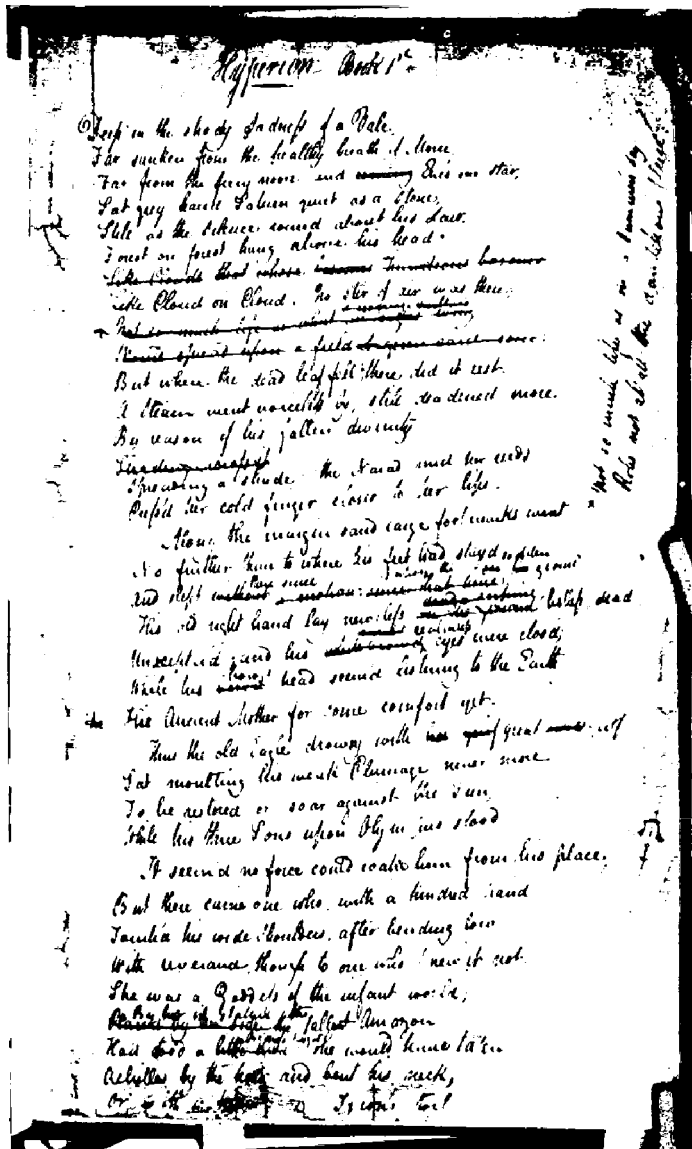 Hyperion Book 1st
Deep in the shady Sadness of a Vale
Far sunken from the healthy breath of Morn
Far from the fiery noon and evening Eve's one star,
Sat grey hair'd Saturn quiet as a stone,
Still as the Silence round about his Lair.
Forest on forest hung above his head.
Like Clouds that whose bosoms thundrous bosoms
Like Cloud on Cloud. No stir of air was there,
Not so much life as what
Would spread upon a field
But where the dead leaf fell there did it rest.
A Stream went voiceless by, still deadened more
By reason of his fallen divinity
Spreading a shade: the Naiad mid her reeds
Press'd her cold finger closer to her lips.
Along the margin sand large foot marks went
No further than to where his feet had stay'd
And slept without a motion: since that time
ground
His old right hand lay nerveless listless dead
Unsceptred; and his eyes were closd,
While his bow'd head seem'd listening to the Earth
The Ancient Mother for some comfort yet.
Thus the old Eagle drowsy with great
Sat moulting his weak Plumage never more
To be restored or soar against the Sun,
While his three Sons upon Olympus stood
It seem'd no force could wake him from his place.
But there came one who with a kindred hand
Touch'd his wide Shoulders, after bending low
With reverence, though to one who knew it not
She was a Goddess of the infant world;
By her in stature the tallest Amazon
Had stood a she would have ta'en
Achilles by the hair and bent his neck,
Or with toil
Not so much life as on a summer's day
Robs not at all the dandelions fleece